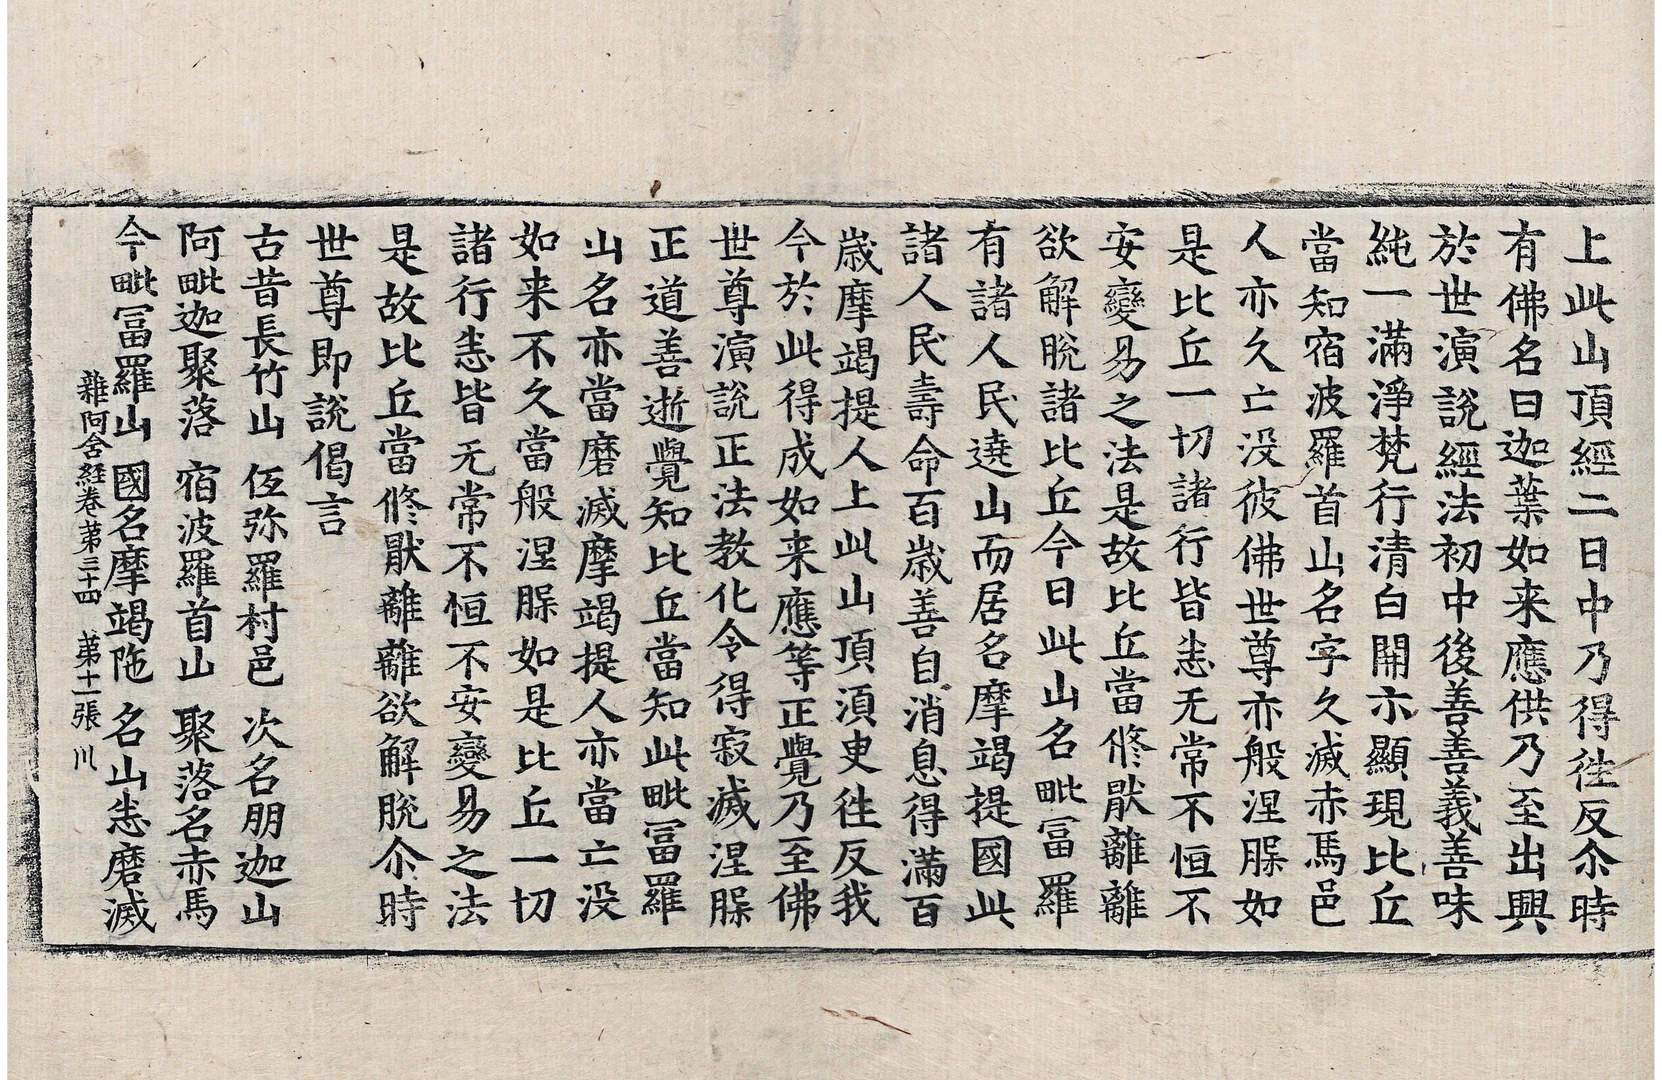 上此山頂經二日中乃得徃反尒時
有佛名曰迦葉如来應供乃至出興
於世演說經法初中後善善義善味
純一滿淨梵行清白開示顯現比丘
當知宿波羅首山名字久滅赤馬邑
人亦久亡没彼佛世尊亦般涅𦜯如
是比丘一切諸行皆恚无常不恒不
安變易之法是故比丘當修猒離離
欲解脫諸比丘今日此山名毗冨羅
有諸人民遶山而居名摩竭提國此
諸人民壽命百歲善自消息得滿百
歲摩竭提人上此山頂須臾徃反我
今於此得成如来應等正覺乃至佛
世尊演說正法教化令得寂滅涅𦜯
正道善逝覺知比丘當知此毗冨羅
山名亦當磨滅摩竭提人亦當亡没
如来不久當般涅𦜯如是比丘一切
諸行恚皆无常不恒不安變易之法
是故比丘當修猒離離欲解脫尒時
世尊即說偈言
古昔長竹山 仾弥羅村邑 次名朋迦山
阿毗迦聚落 宿波羅首山 聚落名赤馬
今毗冨羅山 國名摩竭陁 名山恚磨滅
雜阿含経卷苐三十四 苐十一張 川